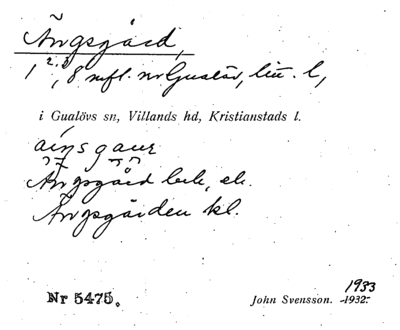 Ängsgård,
1 2, 3, 8 mfl. nr Gualöv, litt. l,
i Gualövs sn, Villands hd, Kristianstads l.
Ängsgård beb, ek.
Ängsgården kl.
Nr 5475.
John Svensson. 1932. 1933